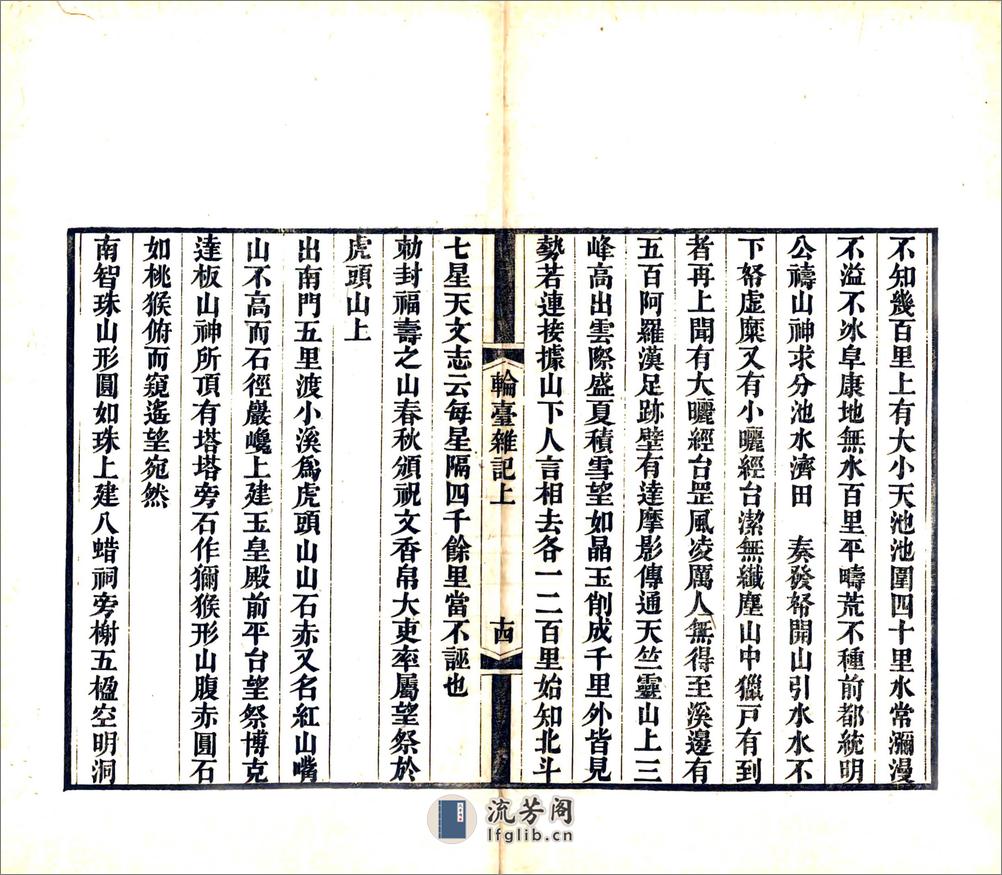 不知幾百里上有大小天池池圍四十里水常瀰漫
不溢不冰阜康地無水百里平疇荒不種前都統明
公禱山神求分池水濟田　奏發帑開山引水水不
下帑虛糜又有小曬經台潔無纖塵山中獵戸有到
者再上聞有大曬經台罡風凌厲人無得至溪邊有
五百阿羅漢足跡壁有達摩影傳通天竺靈山上三
峰高出雲際盛夏積雪望如晶玉削成千里外皆見
勢若連接據山下人言相去各一二百里始知北斗
輪臺雜記上
十四
七星天文志云每星隔四千餘里當不誣也
勅封福壽之山春秋頒祝文香帛大吏率屬望祭於
虎頭山上
出南門五里渡小溪爲虎頭山山石赤又名紅山嘴
山不高而石徑巖巉上建玉皇殿前平台望祭博克
達板山神所頂有塔塔旁石作獼猴形山腹赤圓石
如桃猴俯而窺遙望宛然
南智珠山形圓如珠上建八蜡祠旁榭五楹空明洞
流芳阁
lfglib.cn